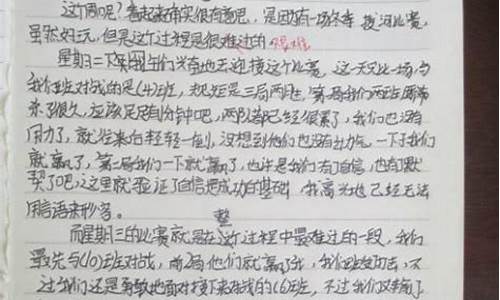 这个周呢？看起来确实很有意思，是因为有一场冬季拔河比赛，
虽然好玩，但是这个过程是很难过的 很难
星期二下午我们兴奋地去迎接这个比赛，这一天只比一场，与
我们班对战的是(4)班，规矩是三局两胜，第一局我们两班
来了很久，应该足足有1分钟吧，两队都已经很累了，我们也没有
用力了，就往来自轻轻一拉，没想到他们也没有出力气，一下子我们
就赢了，第二局我们一下就赢了，也许是我们有了自信，也有了默
契了吧，这里就验证了自信是成功的基础，我高兴地已经无法
用言语来形容。
整
而星期三的比赛就是在这个过程中最难过的一段，我们
最先与(10)班对战，前2局他们就赢了我，我们班没回击，不
过我们还是勇敢地面对接下来对战的(6)班，不过我们又输了